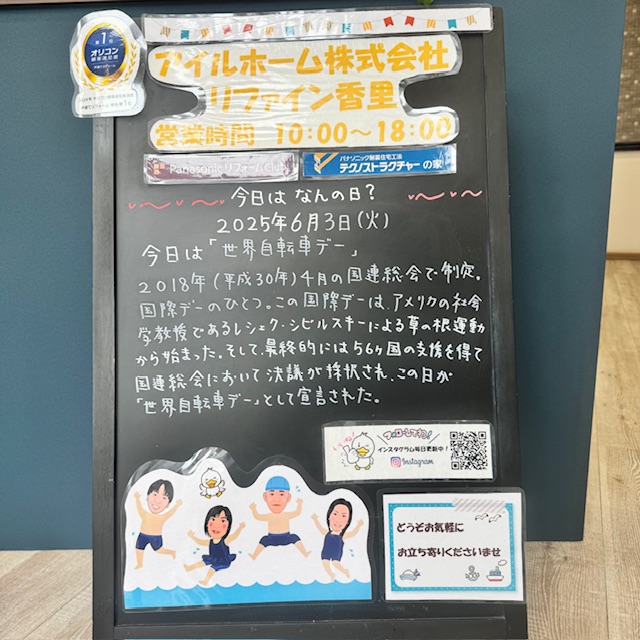 第1位
オリコン
顧客満足度
アイルホーム株式会社
リファイン香里
営業時間 10:00〜18:00
Panasonic リフォームClub
パナソニック耐震住宅工法
テクノストラクチャーの家
今日はなんの日?
2025年6月3日(火)
今日は「世界自転車デー」
2018年(平成30年)4月の国連総会で制定。
国際デーのひとつ。この国際デーは、アメリカの社会
学教授であるレシェク・シビルスキーによる草の根運動
から始まった。そして、最終的には56ヶ国の支援を得て
国連総会において決議が採択され、この日が
「世界自転車デー」として宣言された。
フォローしてね!
いいね!
インスタグラム毎日更新中!
Instagram
どうぞお気軽に
お立ち寄りくださいませ